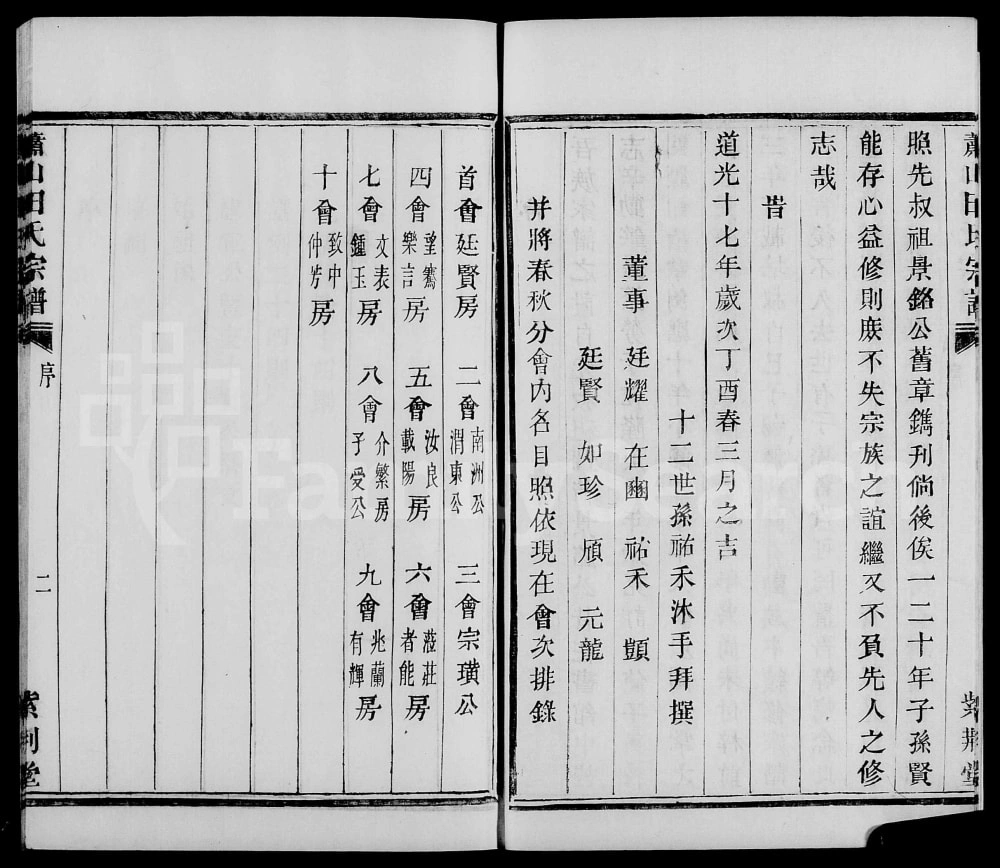 蕭山田氏宗譜
紫荊堂
照先叔祖景銘公舊章鐫刊倘後俟一二十年子孫賢
能存心益修則庶不失宗族之誼繼又不負先人之修
志哉
旹
道光十七年歲次丁酉春三月之吉
十二世孫祐禾沐手拜撰
董事 廷耀 在豳 祐禾 顗
廷賢 如珍 頎 元龍
并將春秋分會內各目照依現在會次排錄
首會廷賢房 二會南洲公渭東公 三會宗璜公
四會望鶱樂言房 五會汝良載陽房 六會蒞莊者能房
七會文表鍾玉房 八會介繁房子受公 九會兆蘭有輝房
十會致中仲芳房
蕭山田氏宗譜
序
二
紫荊堂